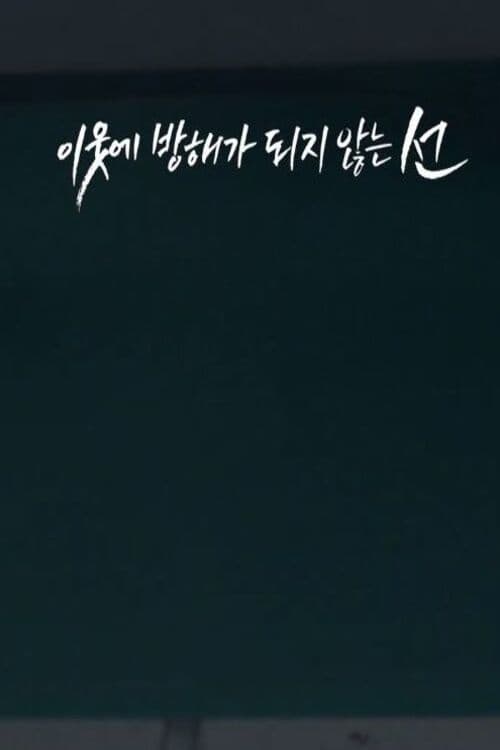 이웃에 방해가 되지 않는 선